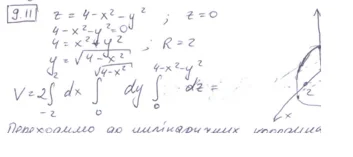 9.11 z = 4 - x² - y² ; z = 0
4 - x² - y² = 0
4 = x² + y² ; R = 2
y = √(4 - x²)
V = 2∫₋₂² dx ∫₀^√(4-x²) dy ∫₀^(4-x²-y²) dz =
Переходимо до циліндричних координа
2
x